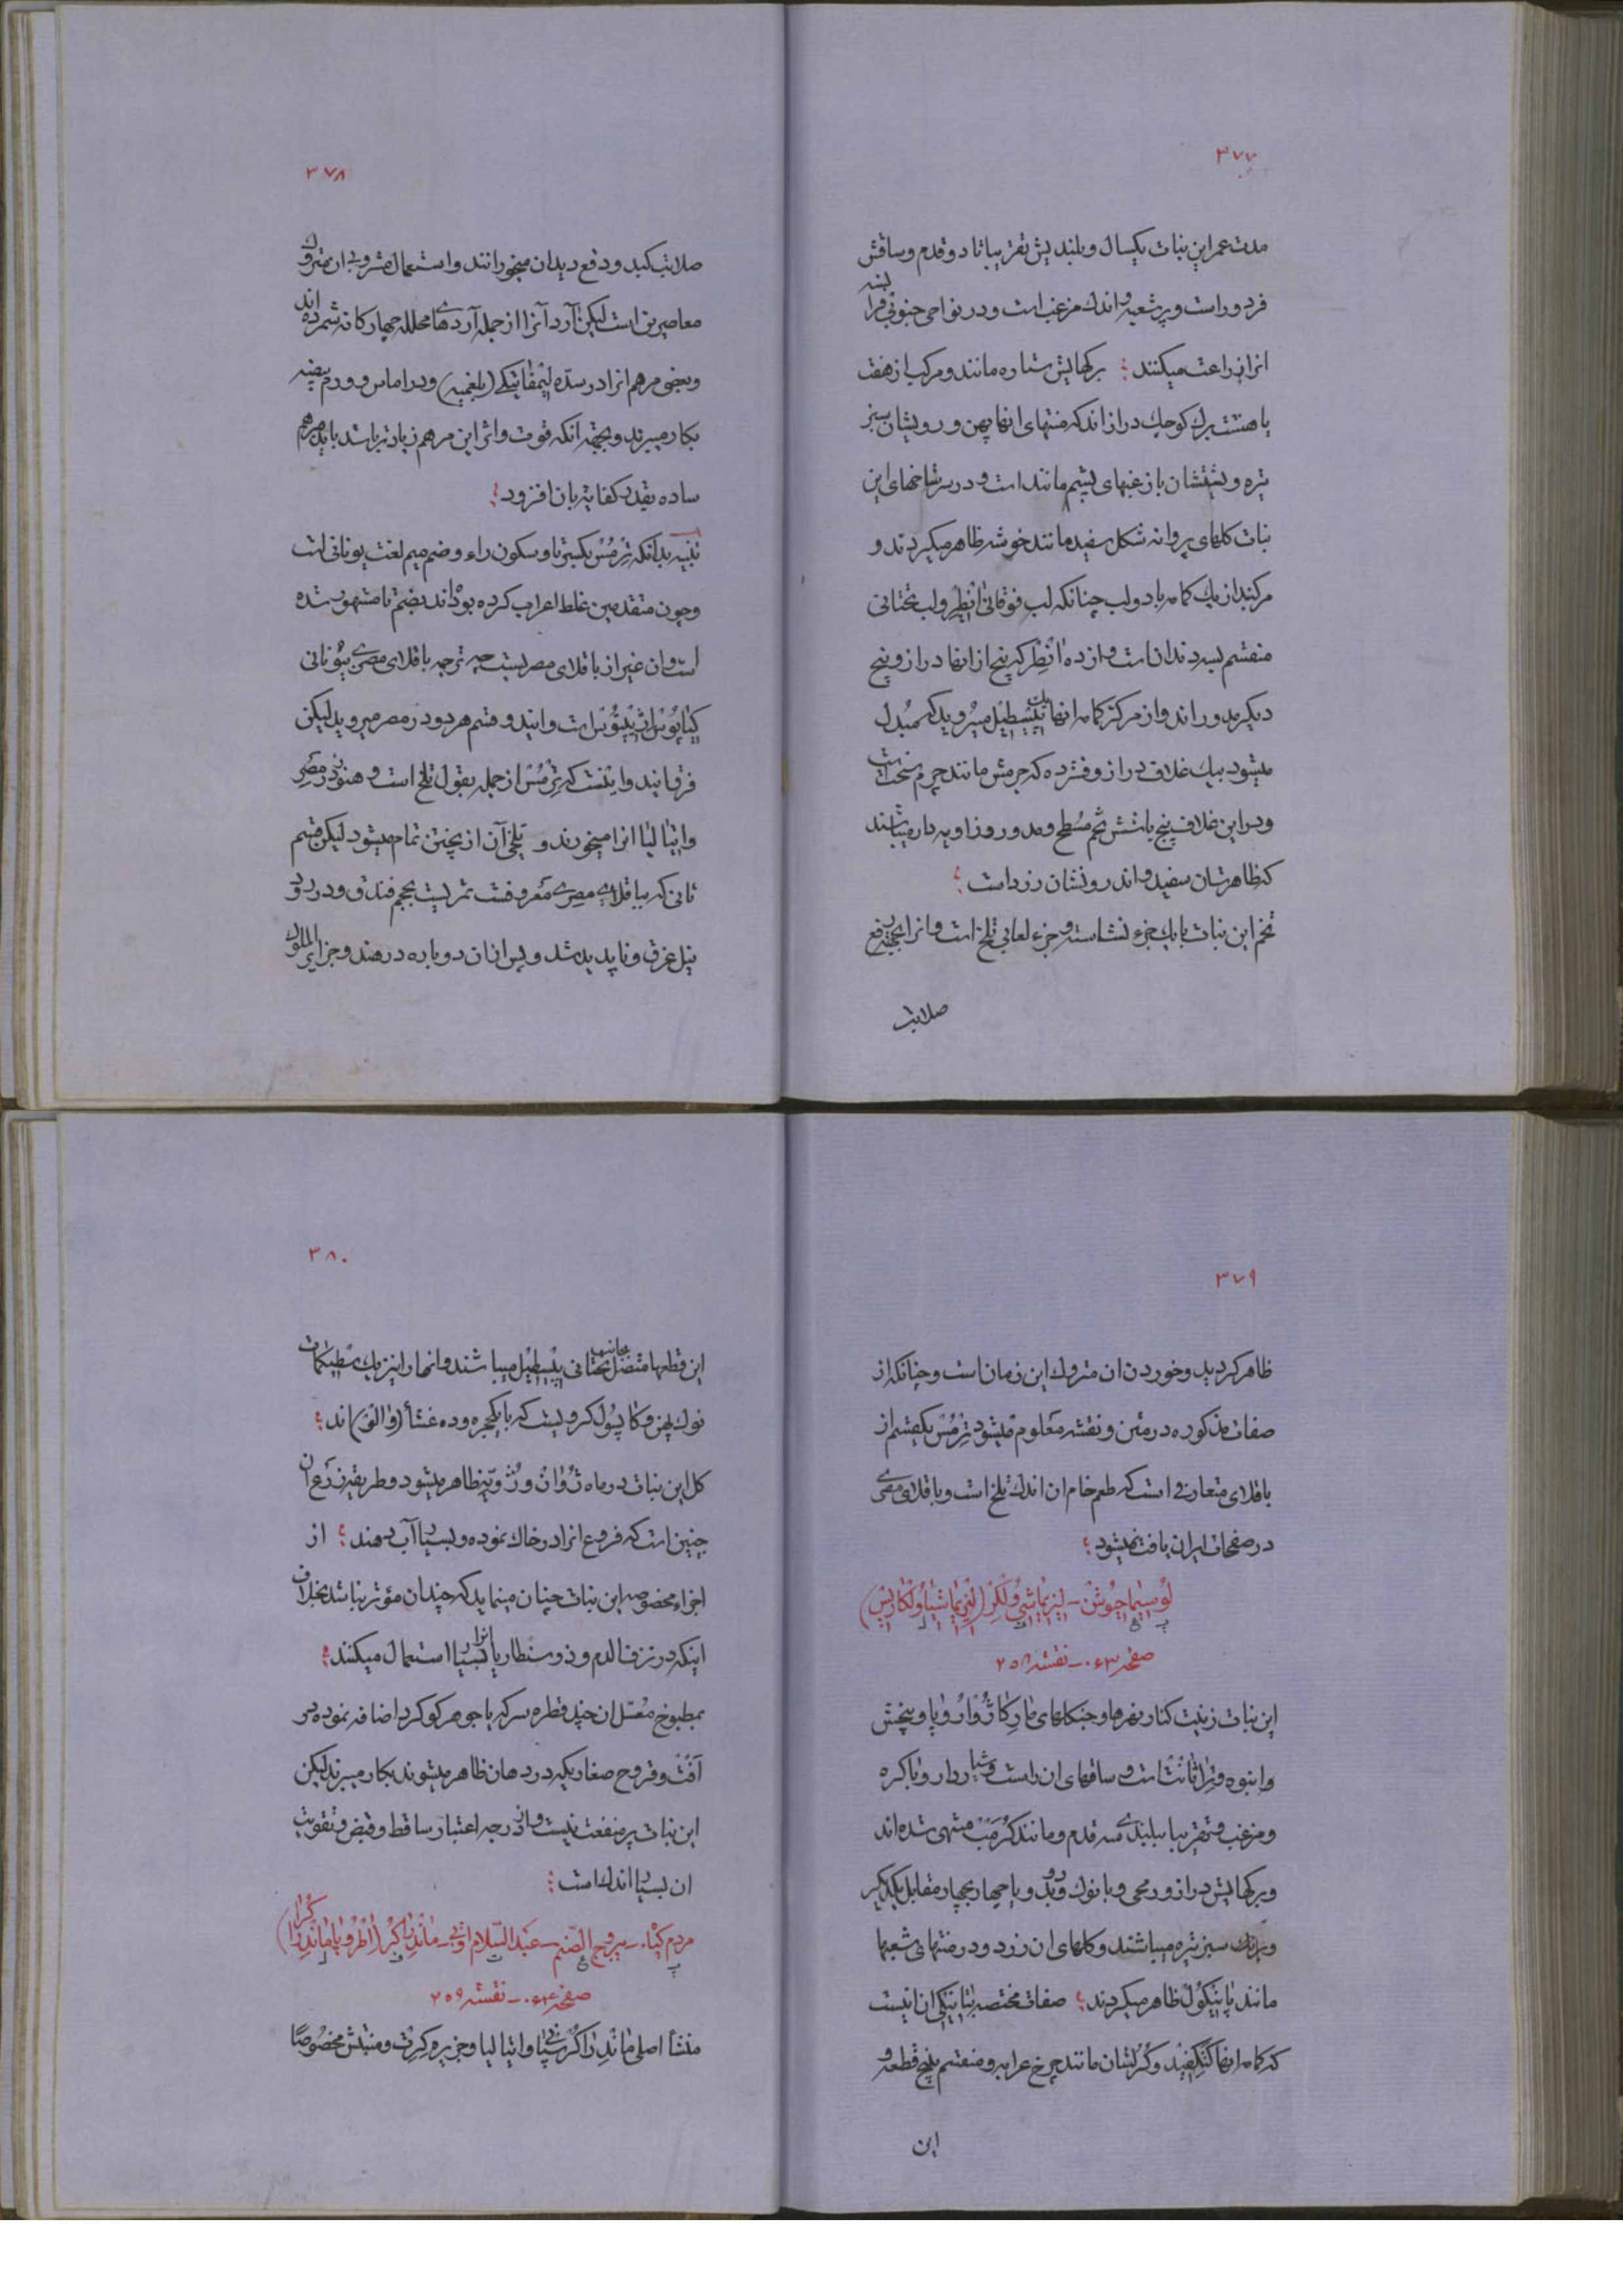 ۳۷۷
مدت عمر این نبات یکسال و بلندیش تقریباً تا دو قدم و ساقش
فرد و راست و پر شعبه و اندک مزغب است و در نواحی جنوبی فرانسه
انرا زراعت میکنند؛ برکهایش ستاره مانند و مرکب از هفت
یا هشت برک کوچک دراز اند که منتهای انها پهن و رویشان سبز
تیره و پشتشان با زغبهای پشم مانند است و در سر شاخهای این
نبات کلهای پروانه شکل سفید مانند خوشه ظاهر میکردند و
مرکبند از یک کاسه با دو لب چنانکه لب فوقانی انطر و لب تحتانی
منقسم بسه دندان است و از ده انطر که پنج از انها دراز و پنج
دیکر مدور اند و از مرکز کاسه انها یک پیسطیل میروید که مبدل
میشود بیک غلاف دراز و فشرده که جرمش مانند چرم سخت است
و در این غلاف پنج یا شش تخم مسطح و مدور و زاویه دار میباشند
که ظاهرشان سفید و اندرونشان زرد است؛
تخم این نبات با یک جزء نشاسته و جزء لعابی تلخ است و انرا بجهة رفع
صلابت
۳۷۸
صلابت کبد و دفع دیدان میخورانند و استعمال مشروبی ان متروک
معاصرین است لیکن آرد آنرا از جمله آردهای محلله چهارکانه شمرده اند
و بعضی مرهم انرا در سده لیمفاتیکی (بلغمیه) و در اماس و ورم بیضه
بکار میبرند و بجهة انکه قوت و اثر این مرهم زیادتر باشد باید مرهم
ساده بقدر کفایة بان افزود؛
تنبیه بدانکه ترمس بکسر تا و سکون راء و ضم میم لغت یونانی است
و چون متقدمین غلط اعراب کرده بوده اند بضم تا مشهور شده
است و ان غیر از باقلای مصریست چه ترجمه باقلای مصری بیونانی
است و ایندو قسم هردو در مصر میروید لیکن
فرقمابند و اینست که ترمس از جمله بقول تلخ است و هنوز در مصر
و ایتالیا انرا میخورند و تلخی آن از پختن تمام میشود لیکن قسم
ثانی که بباقلای مصری معروفست ثمریست بحجم فندق و در رود
نیل غرق و ناپدید شد و پس از ان دوباره در هند و جزایر الملوک
۳۷۹
ظاهر کردید و خوردن ان متروک این زمان است و چنانکه از
صفات مذکوره در متن و نقشه معلوم میشود ترمس یکقسم از
باقلای متعارفی است که طعم خام ان اندک تلخ است و باقلای مصری
در صفحات ایران یافت نمیشود؛
لوسیماچوش - لیزیماشی ولکر (لیزیماشیا ولکاریس)
صفحه ۰۴۳ - نقشه ۲۵۸
این نبات زینت کنار نهرها و جنکلهای مارکات اروپا و بیخش
و انبوه و تراثانت است و ساقهای ان راست و شیاردار و با کره
و مزغب و تقریباً ببلندی سه قدم و مانند کرمب منتهی شده اند
و برکهایش دراز و رمحی و با نوک و چهار بچهار مقابل یکدیکر
و برنک سبز تیره میباشند و کلهای ان زرد و در منتهای شعبها
مانند پانیکول ظاهر میکردند؛ صفات مختصه بتانیکی ان اینست
که کاسه انها کنکفید و کرلشان مانند چرخ عرابه و منقسم بپنج قطعه و
این
۳۸۰
این قطعها متصل بجانبهای تحتانی پیسطیل میباشند و انها را نیز یک سطیکمات
نوک پهن و کاپسول کرویست که با یکحجره و ده غشأ (والف) اند؛
کل این نبات در ماه ژوان و ژویه ظاهر میشود و طریقه زرع ان
چنین است که فروع انرا در خاک نموده و بسیار آب دهند؛ از
اجزاء مخصوصه این نبات چنان مینماید که چندان مؤثر نباشد بخلاف
اینکه در نزف الدم و ذوسنطاریا انرا بسیار استعمال میکنند؛
بمطبوخ معسل ان چند قطره سرکه یا جوهر کوکرد اضافه نموده در
آفت و قروح صغاریکه در دهان ظاهر میشوند بکار میبرند لیکن
این نبات پر منفعت نیست و از درجه اعتبار ساقط و قبض و تقویت
ان بسیار اندک است؛
مردم کیاه - یبروح الصنم - عبد السلام اوتی - ماندراکر (اطروپا ماندراکرا)
صفحه ۰۴۴ - نقشه ۲۵۹
منشأ اصلی ماندراکر اسپانیا و ایتالیا و جزیره کرت و منبتش مخصوصاً